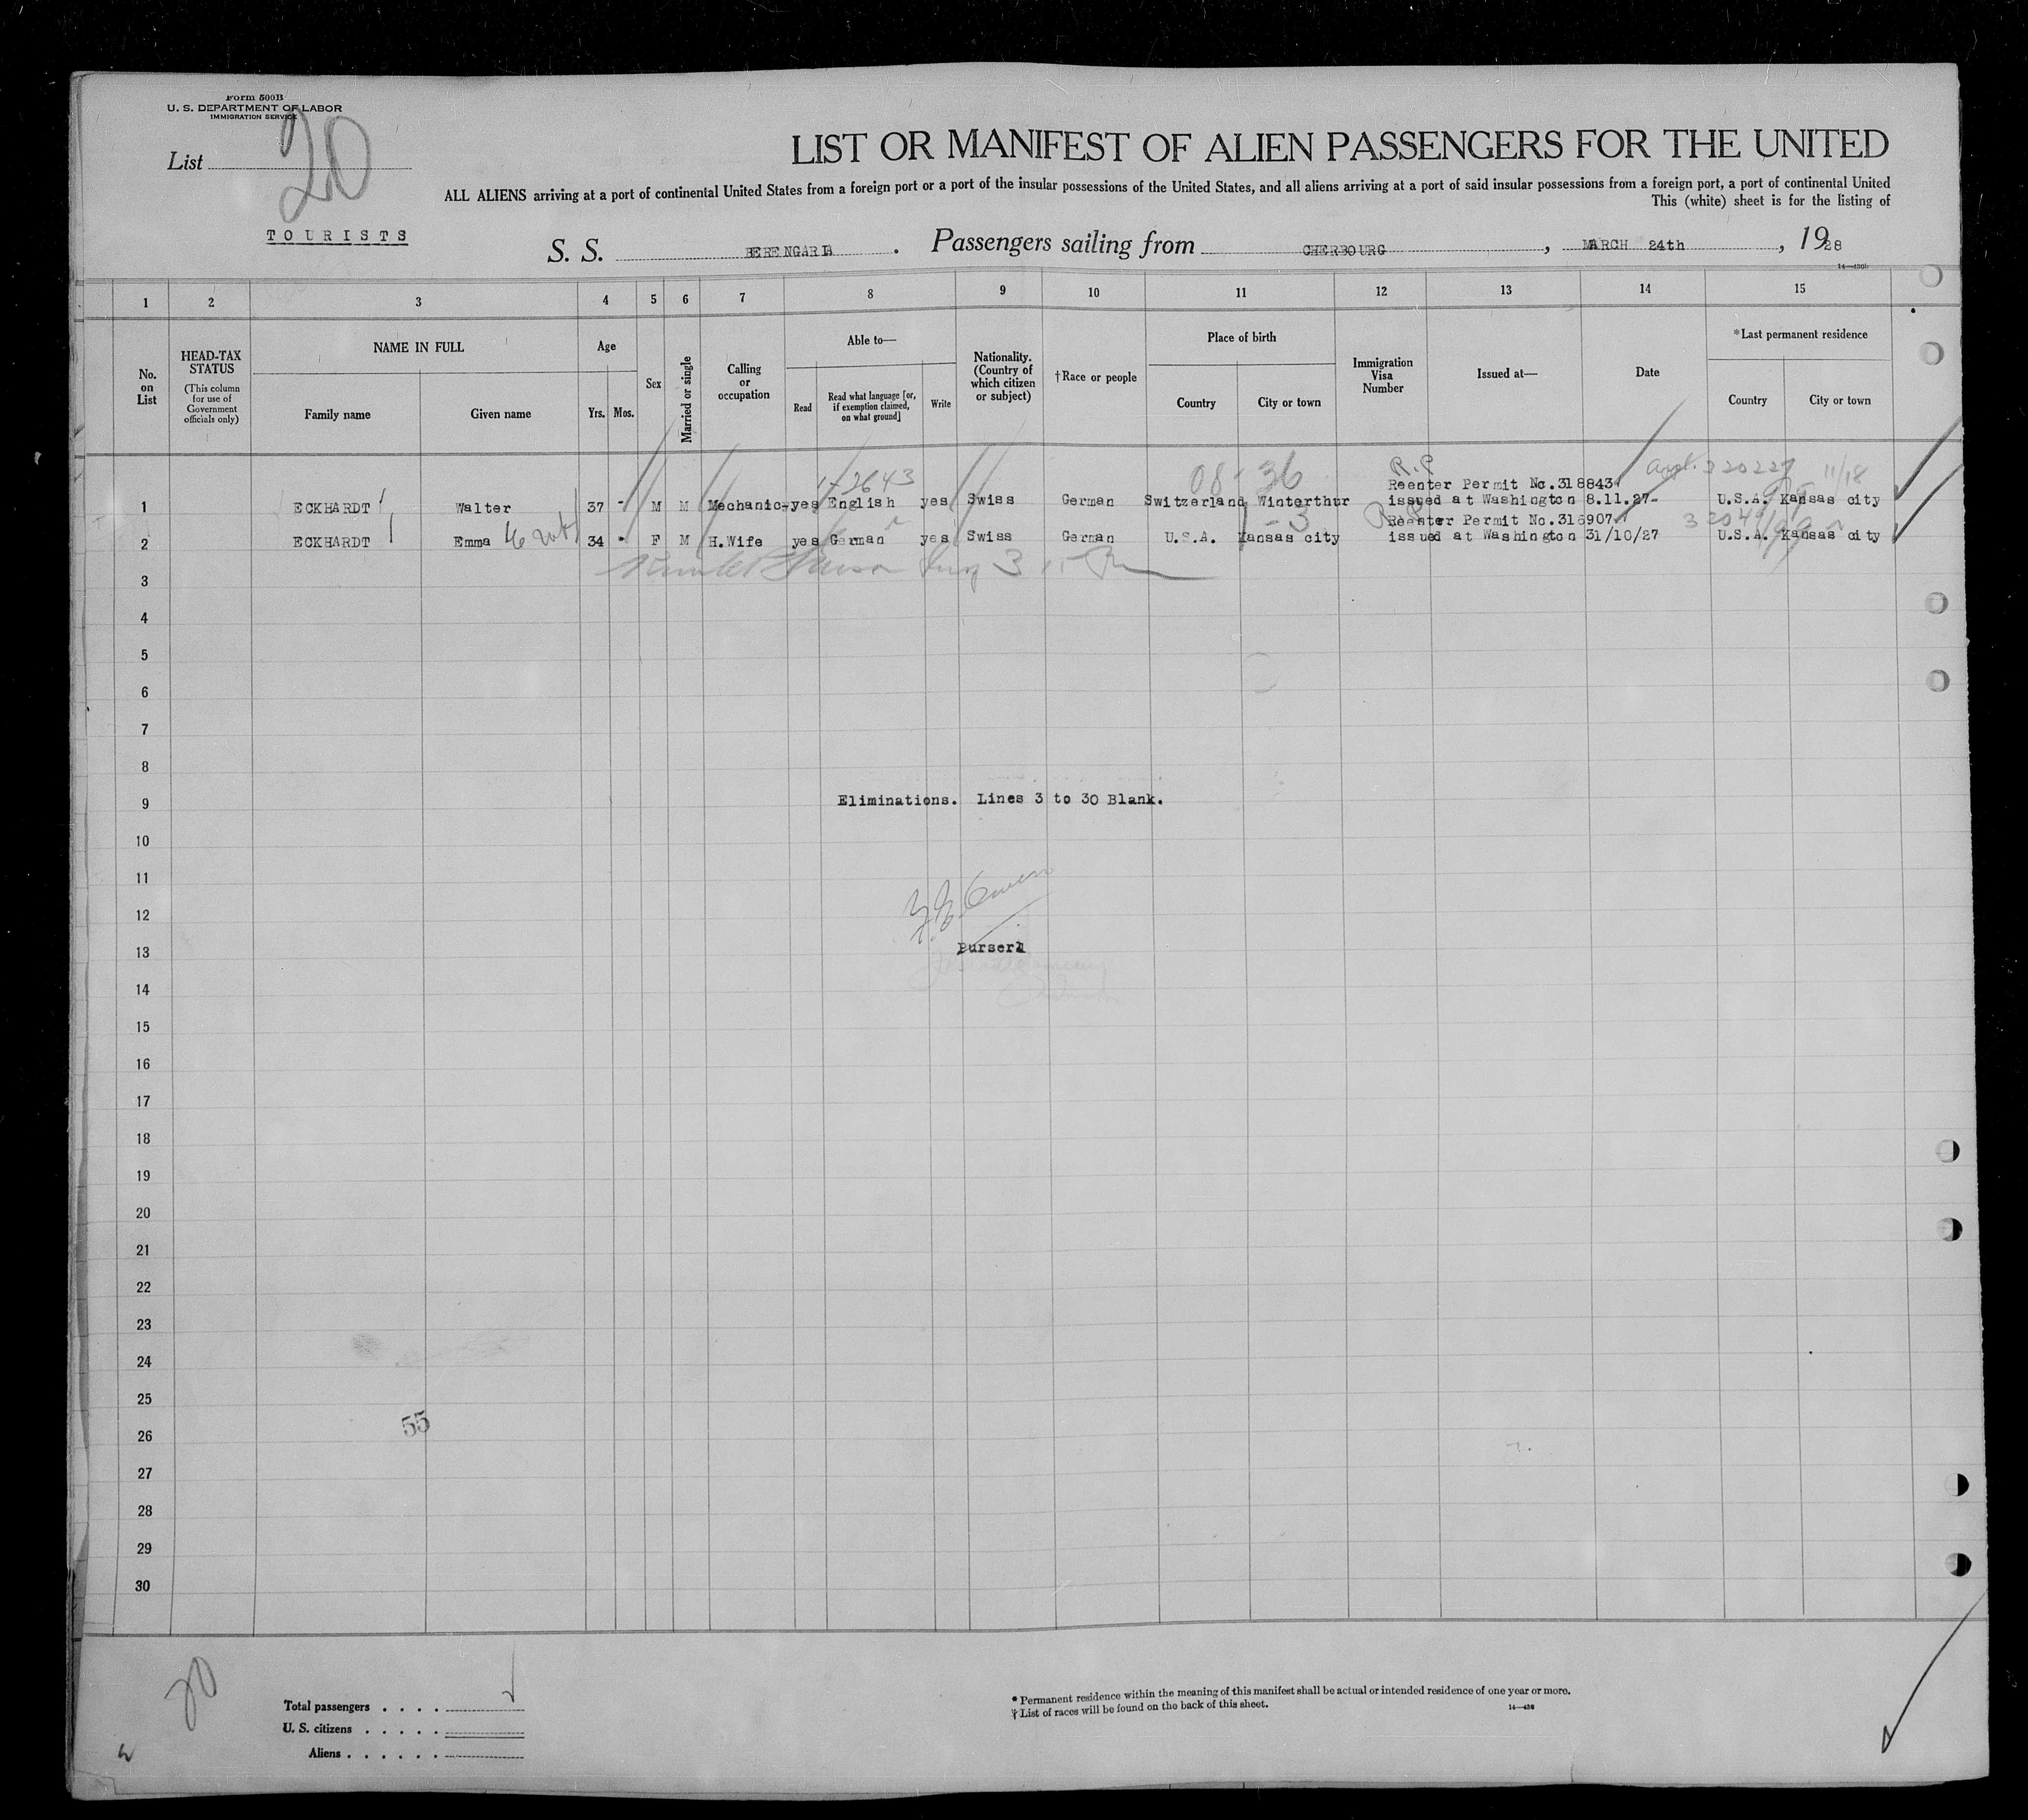 Form 500B
U. S. DEPARTMENT OF LABOR
IMMIGRATION SERVICE
List 20
LIST OR MANIFEST OF ALIEN PASSENGERS FOR THE UNITED
ALL ALIENS arriving at a port of continental United States from a foreign port or a port of the insular possessions of the United States, and all aliens arriving at a port of said insular possessions from a foreign port, a port of continental United
This (white) sheet is for the listing of
TOURISTS
S. S. BERENGARIA . Passengers sailing from CHERBOURG , MARCH 24th , 1928
1 2 3 4 5 6 7 8 9 10 11 12 13 14 15
No. on List
HEAD-TAX STATUS
(This column for use of Government officials only)
NAME IN FULL
Family name Given name
Age
Yrs. Mos.
Sex
Married or single
Calling or occupation
Able to—
Read
Read what language [or, if exemption claimed, on what ground]
Write
Nationality. (Country of which citizen or subject)
†Race or people
Place of birth
Country City or town
Immigration Visa Number
Issued at—
Date
*Last permanent residence
Country City or town
1-2643 08-36 R.P. 320227 11/18
Reenter Permit No.318843
1 ECKHARDT Walter 37 - M M Mechanic-yes English yes Swiss German Switzerland Winterthur issued at Washington 8.11.27- U.S.A. Kansas city
Reenter Permit No.316907
2 ECKHARDT Emma 34 - F M H.Wife yes German yes Swiss German U.S.A. Kansas city issued at Washington 31/10/27 U.S.A. Kansas city
3
4
5
6
7
8
9 Eliminations. Lines 3 to 30 Blank.
10
11
12
13 Purser
14
15
16
17
18
19
20
21
22
23
24
25
55
26
27
28
29
30
20
Total passengers . . . .
U. S. citizens . . . . .
Aliens . . . . . .
* Permanent residence within the meaning of this manifest shall be actual or intended residence of one year or more.
† List of races will be found on the back of this sheet.